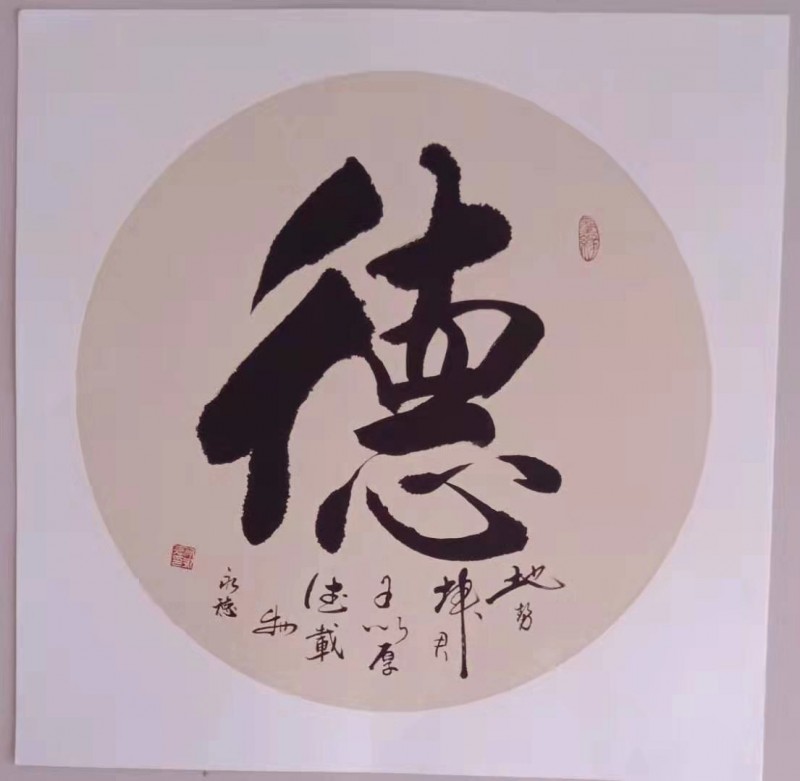 德
地势
坤君
子以厚
德載
物
永德